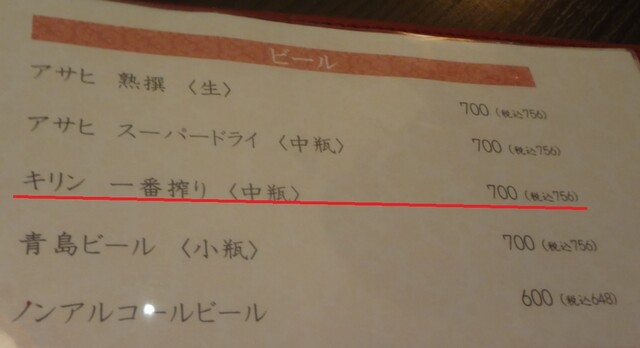 ビール
アサヒ 熟撰 〈生〉 700 (税込756)
アサヒ スーパードライ 〈中瓶〉 700 (税込756)
キリン 一番搾り 〈中瓶〉 700 (税込756)
青島ビール 〈小瓶〉 700 (税込756)
ノンアルコールビール 600 (税込648)